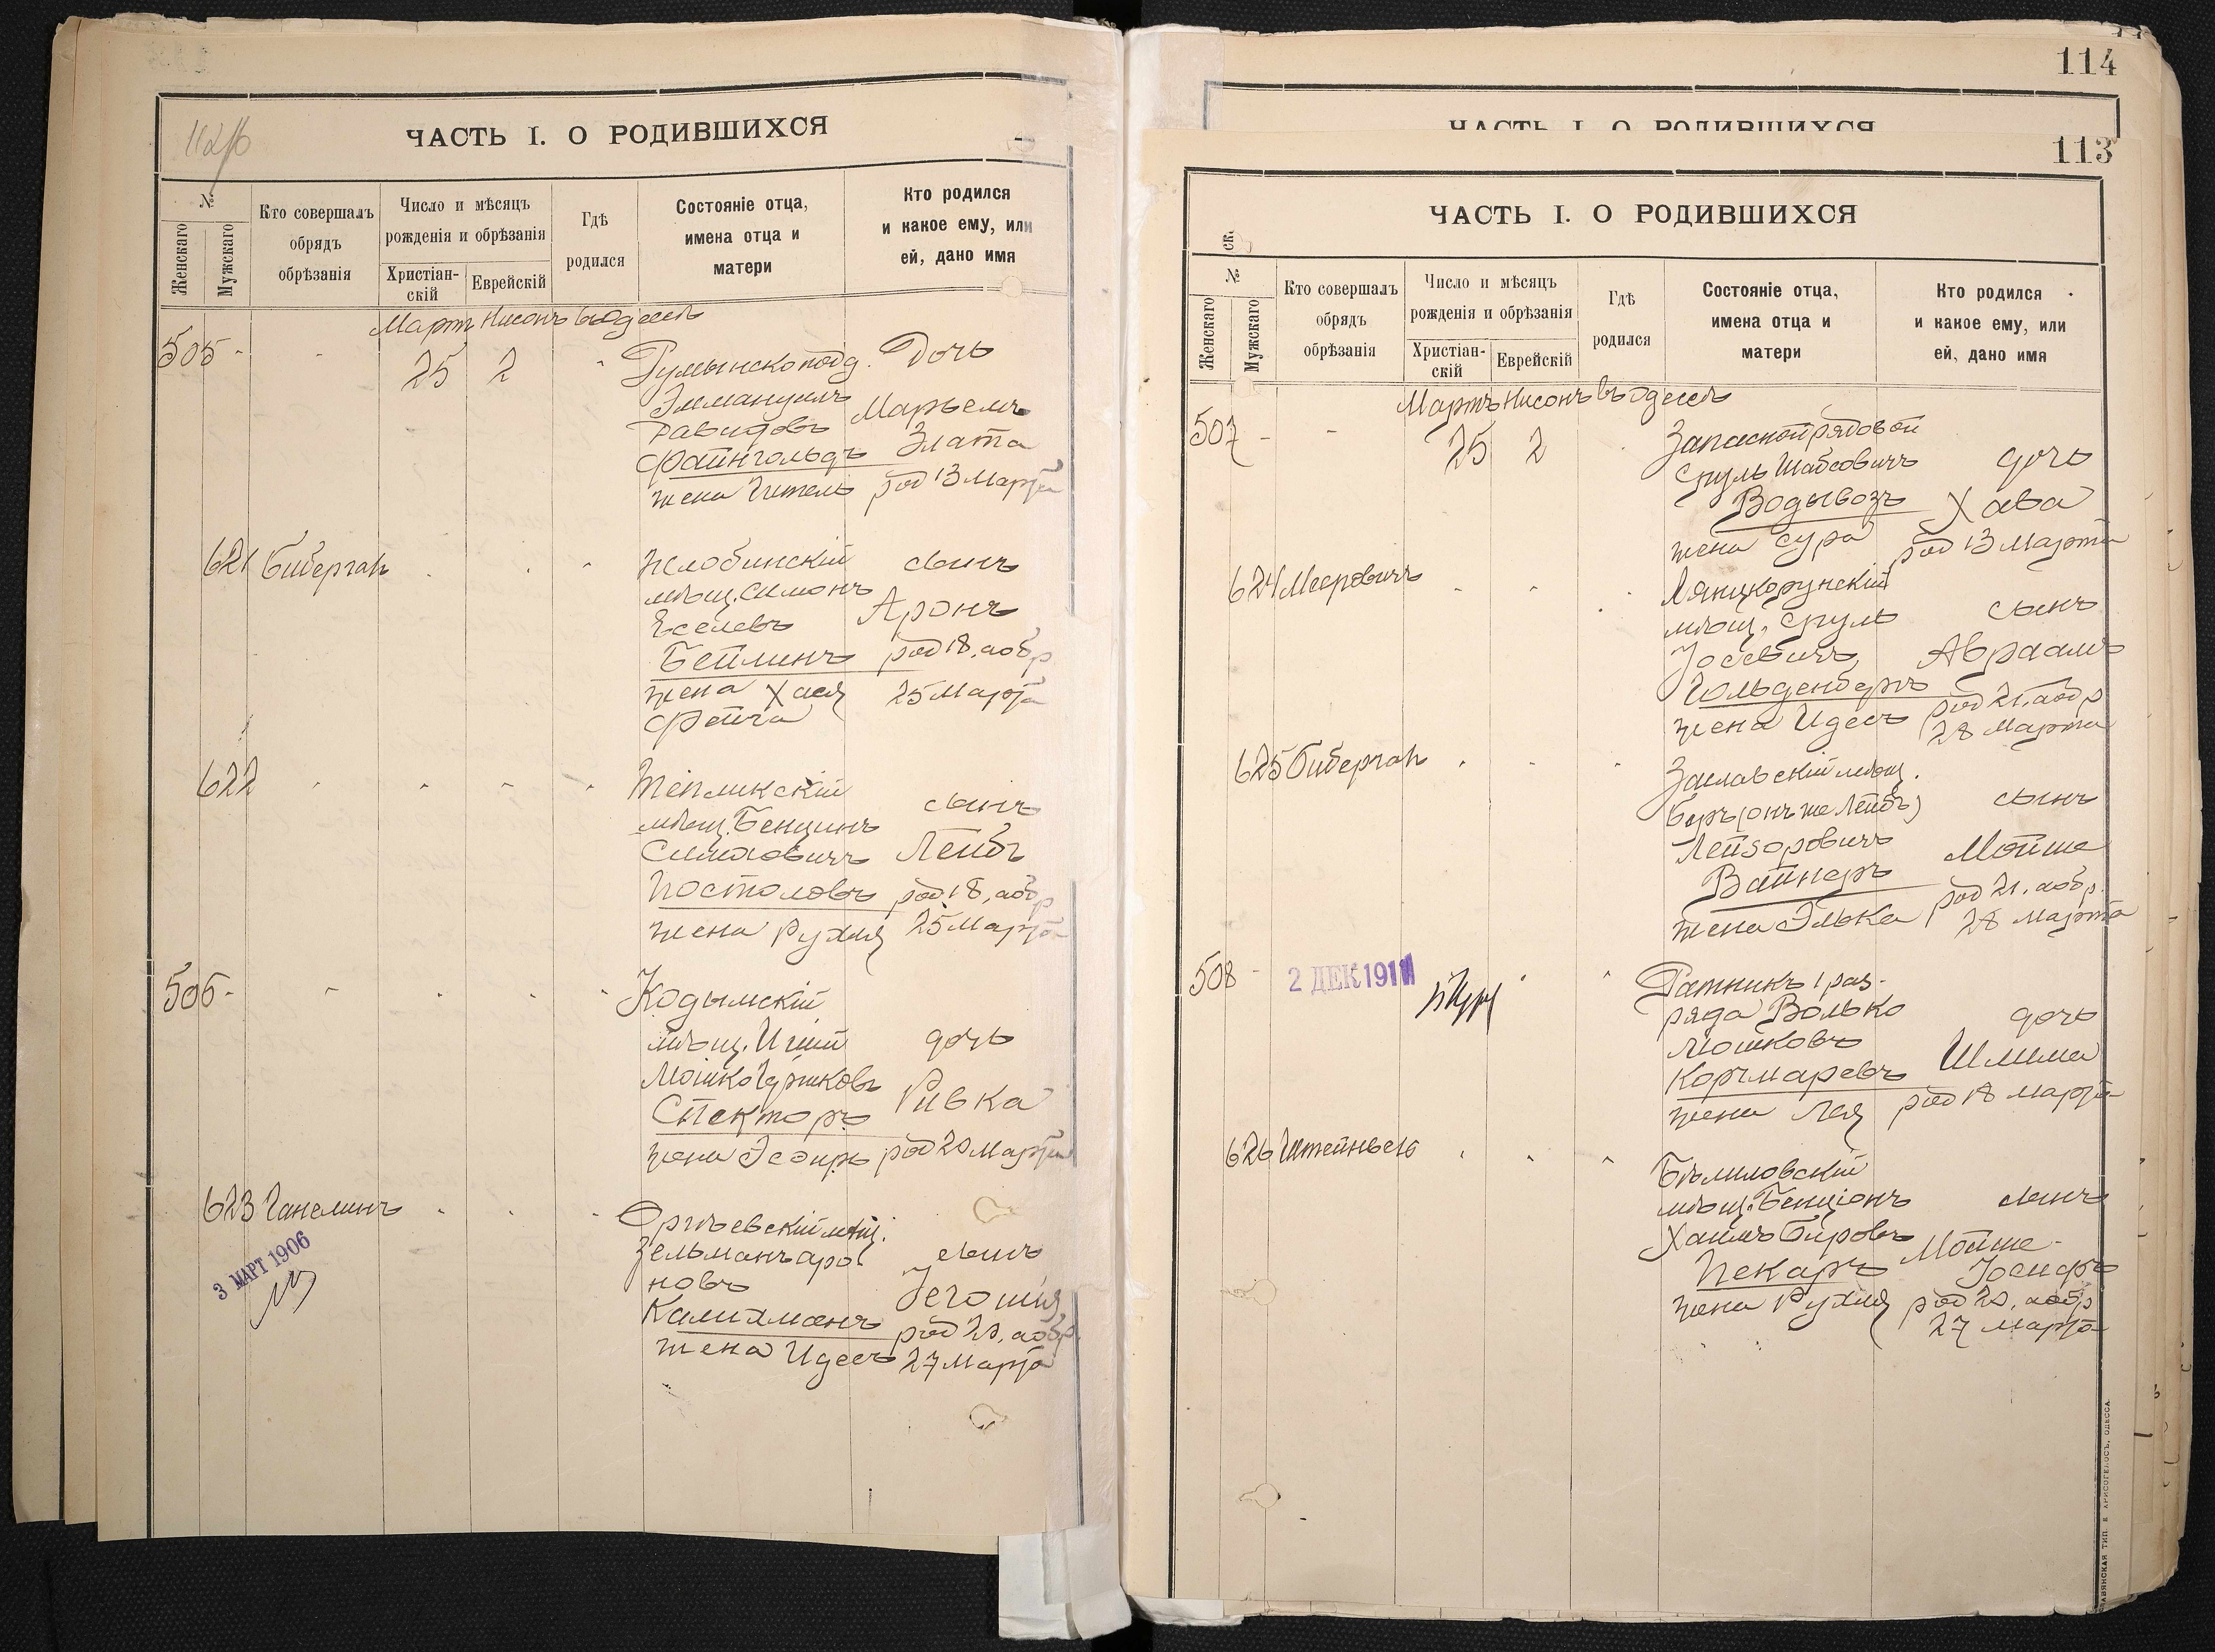 112 об
ЧАСТЬ I. О РОДИВШИХСЯ
№
Женскаго
Мужскаго
Кто совершалъ
обрядъ
обрѣзанія
Число и мѣсяцъ
рожденія и обрѣзанія
Христіан-
скій
Еврейскій
Гдѣ
родился
Состояніе отца,
имена отца и
матери
Кто родился
и какое ему, или
ей, дано имя
Мартъ Нисонъ въ Одессѣ
505 - - 25 2 Румынскоподд. Дочь
Эммануилъ
Давидовъ Марьемъ
Файнгольдъ Злата
жена Гитель род 13 Марта
621 Биберган Жлобинскій сынъ
мѣщ. Симонъ
Еселевъ Аронъ
Бейлинъ род 18, а обр
жена Хася 25 Марта
Фейга
622 Тепликскій сынъ
мѣщ. Бенцинъ
Симховичъ Лейбъ
Постоловъ род 18, а обр
жена Рухля 25 Марта
506 - - Кодымскій
мѣщ. дочь
Мошко Гершковъ
Спекторъ Ривка
жена Эсфирь род 20 Марта
623 Ганелинъ Оргѣевскій мѣщ.
Зельманъ Аро сынъ
новъ
Калихманъ Іегошія
род 20, а обр.
жена Идесъ 27 Марта
3 МАРТ 1906
114
ЧАСТЬ I. О РОДИВШИХСЯ
113
ЧАСТЬ I. О РОДИВШИХСЯ
№
Женскаго
Мужскаго
Кто совершалъ
обрядъ
обрѣзанія
Число и мѣсяцъ
рожденія и обрѣзанія
Христіан-
скій
Еврейскій
Гдѣ
родился
Состояніе отца,
имена отца и
матери
Кто родился
и какое ему, или
ей, дано имя
Мартъ Нисонъ въ Одессѣ
507 - - 25 2 Запасной рядовой
Сруль Шабсовичъ дочь
Водывозъ Хава
жена Сура род 13 Марта
624 Мееровичъ Лянцкорунскій
мѣщ. Сруль сынъ
Іосевичъ Авраамъ
Гольденбергъ род 21, а обр
жена Идесъ 28 Марта
625 Биберган Заславскій мѣщ.
Беръ (онъ же Лейбъ) сынъ
Лейзоровичъ Мойше
Вайнеръ род 21, а обр.
жена Элька 28 Марта
508 - 2 ДЕК 1911 Ратникъ 1 раз-
ряда Волько дочь
Мошковъ
Корчмаревъ Шлима
жена Лея род 18 Марта
626 Штейнвейс Бѣлиловскій
мѣщ. Бенціонъ сынъ
Хаимъ Беровъ Мойше-
Пекаръ Іосифъ
жена Рухля род 20, а обр
27 Марта
СЛАВЯНСКАЯ ТИП. Е. ХРИСОГЕЛОСЪ, ОДЕССА.